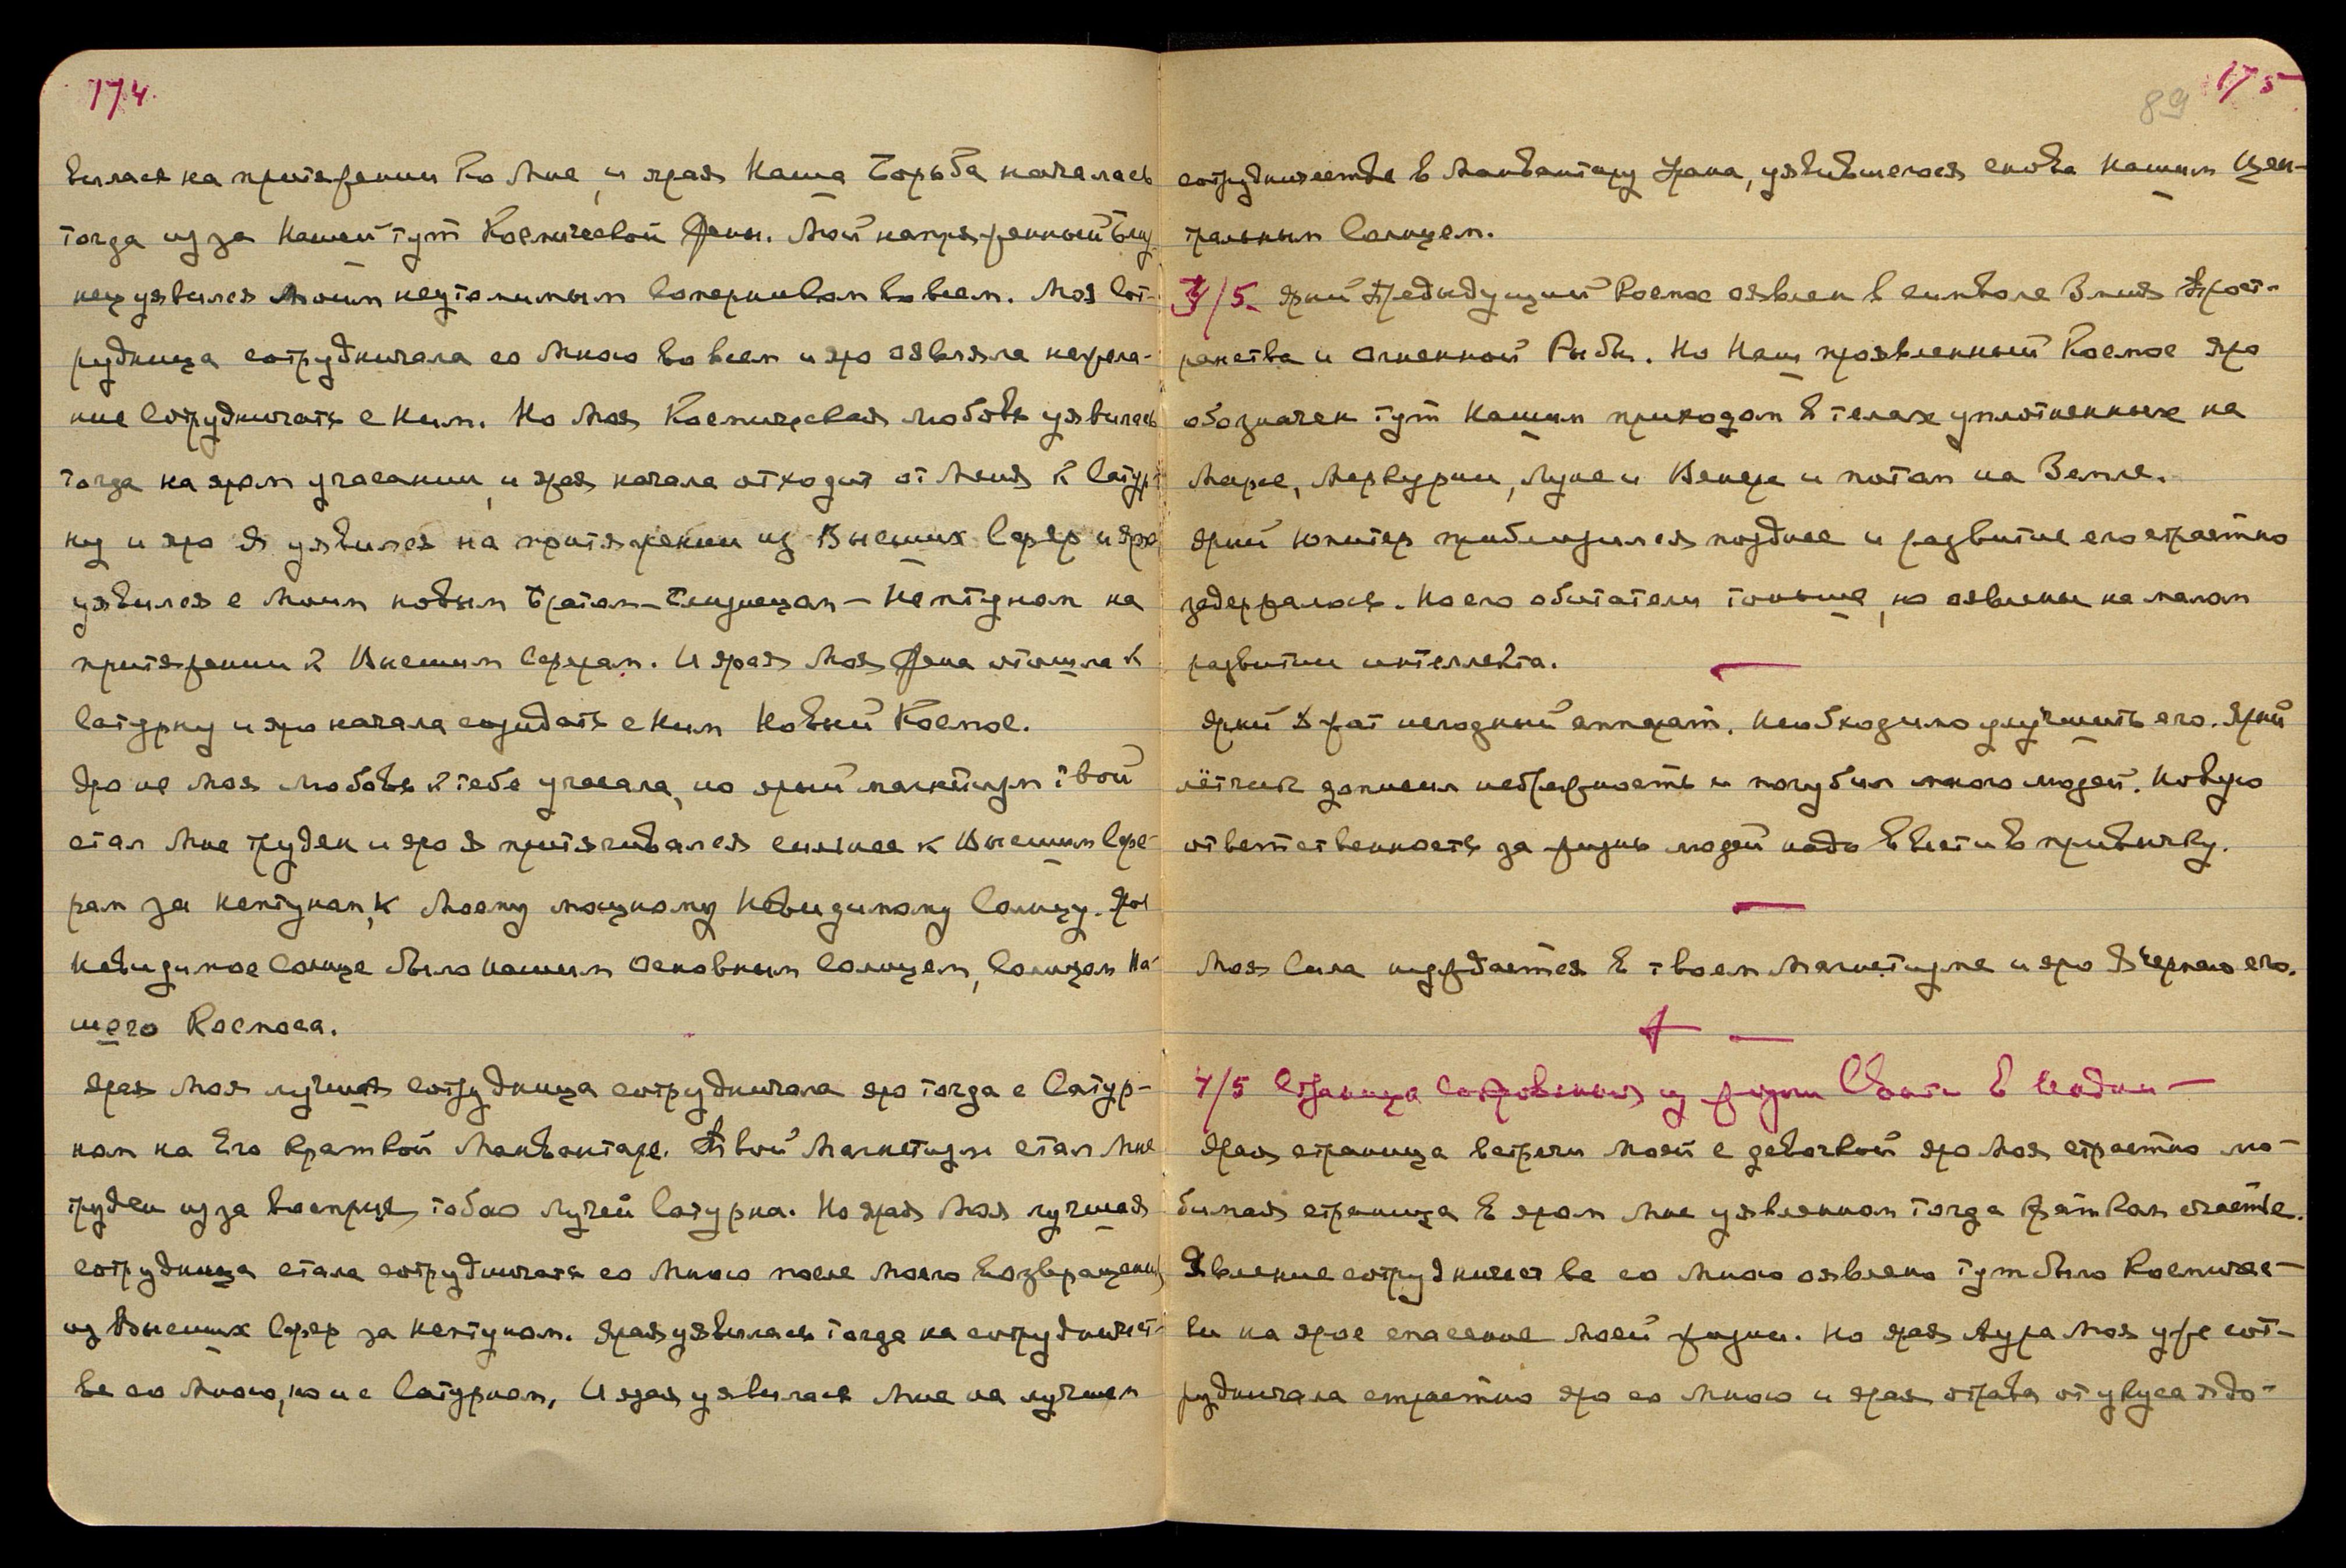 174.
вилася на притяжении ко Мне, и ярая Наша Борьба началась
тогда из за Нашей тут Космической Жены. Мой напряженный Близ-
нец уявился Моим неутомимым Соперником во всем. Моя Сот-
рудница сотрудничала со Мною во всем и яро оявляла нежела-
ние Сотрудничать с Ним. Но Моя Космическая любовь уявилась
тогда на яром угасании, и ярая начала отходить от Меня к Сатур-
ну и яро Я уявился на притяжении из Высших Сфер и яро
уявился с Моим новым Братом-Близнецом – Нептуном на
притяжении к Высшим Сферам. И ярая Моя Жена отошла к
Сатурну и яро начала созидать с Ним Новый Космос.
Яро не Моя любовь к тебе угасала, но ярый магнетизм твой
стал Мне труден и яро Я притягивался сильнее к Высшим Сфе-
рам за Нептуном, к Моему мощному Невидимому Солнцу. Яро
Невидимое Солнце было нашим Основным Солнцем, Солнцем На-
шего Космоса.
Ярая Моя лучшая сотрудница сотрудничала яро тогда с Сатур-
ном на Его Краткой Манвантаре. Твой Магнетизм стал Мне
труден из за восприятия тобою лучей Сатурна. Но ярая Моя лучшая
сотрудница стала сотрудничать со Мною после Моего Возвращения
из Высших Сфер за Нептуном. Ярая уявилась тогда на сотрудничест-
ве со Мною, но и с Сатурном, И ярая уявилася Мне на лучшем
175
89
сотрудничестве в Манвантару Урана, уявившегося снова Нашим Цен-
тральным Солнцем.
3/5 Ярый Предыдущий Космос оявлен в символе Змия Прост-
ранства и Огненной Рыбы. Но Наш проявленный Космос яро
обозначен тут Нашим приходом в телах уплотненных на
Марсе, Меркурии, Луне и Венере и потом на Земле.
Ярый Юпитер приблизился позднее и развитие его страстно
задержалось. Но его обитатели тоньше, но оявлены на малом
развитии интеллекта.
Ярый взят негодный аппарат. Необходимо улучшить его. Ярый
лётчик допустил небрежность и погубил много людей. Новую
ответственность за жизнь людей надо ввести в привычку.
Моя Сила нуждается в твоем Магнетизме и яро Я черпаю его.
4/5 Страница Сокровенная из жизни Святи в Индии –
Ярая страница встречи Моей с девочкой яро Моя страстно лю-
бимая страница в яром Мне уявленном тогда Кратком счастье.
Явление сотрудничества со Мною оявлено тут было Космичес-
ки на ярое спасение Моей жизни. Но ярая Аура Моя уже сот-
рудничала страстно яро со Мною и ярая отрава от укуса ядо-